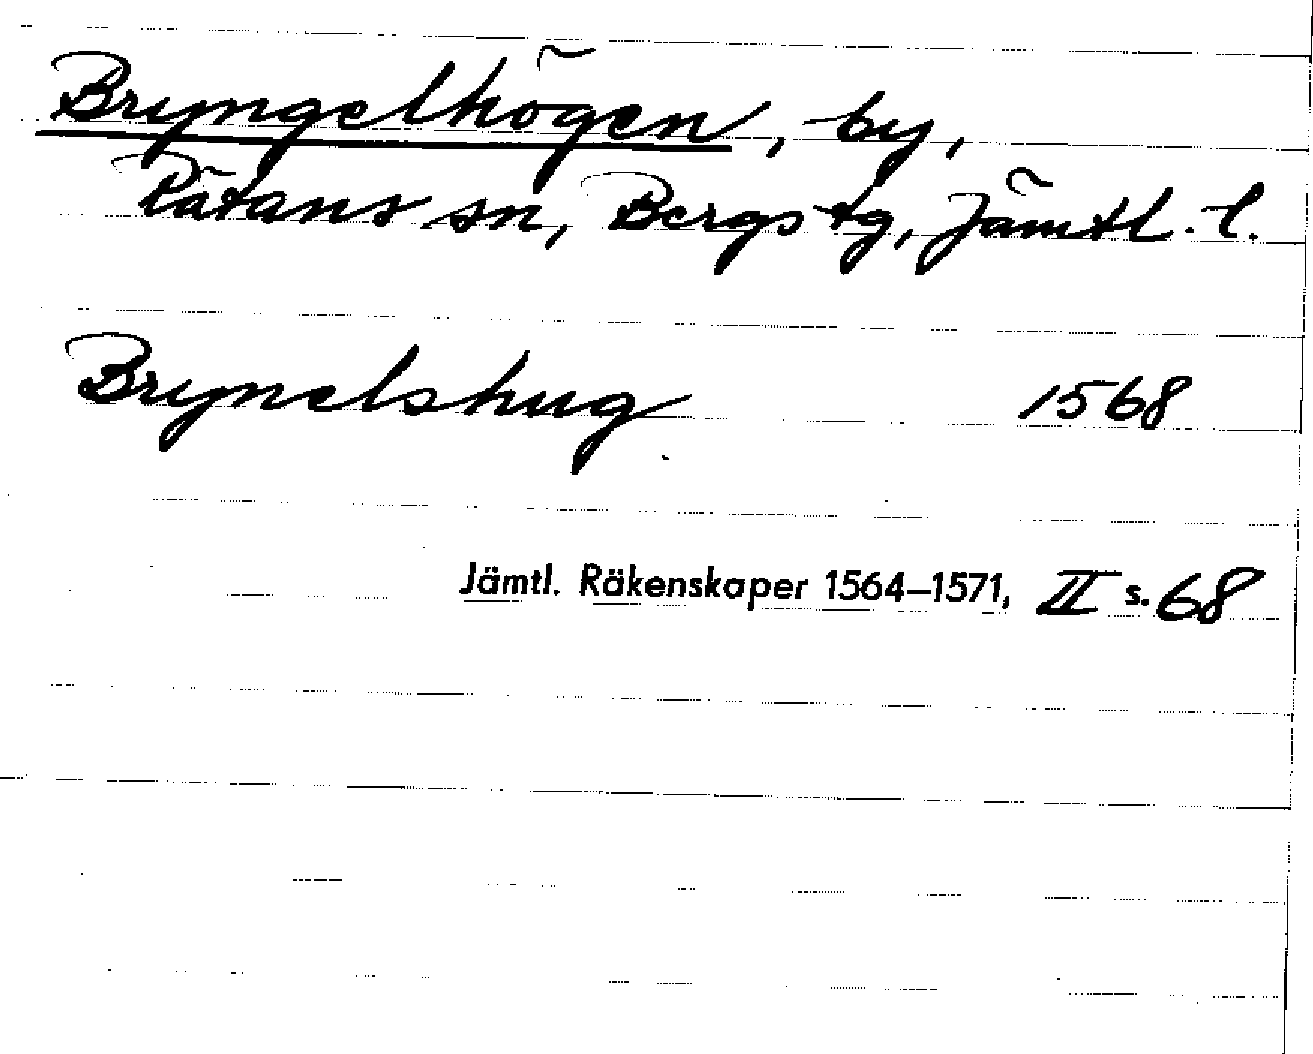 Bryngelhögen, by,
Rätans sn, Bergs tg, Jämtl. l.
Brynelshug 1568
Jämtl. Räkenskaper 1564–1571, II s. 68